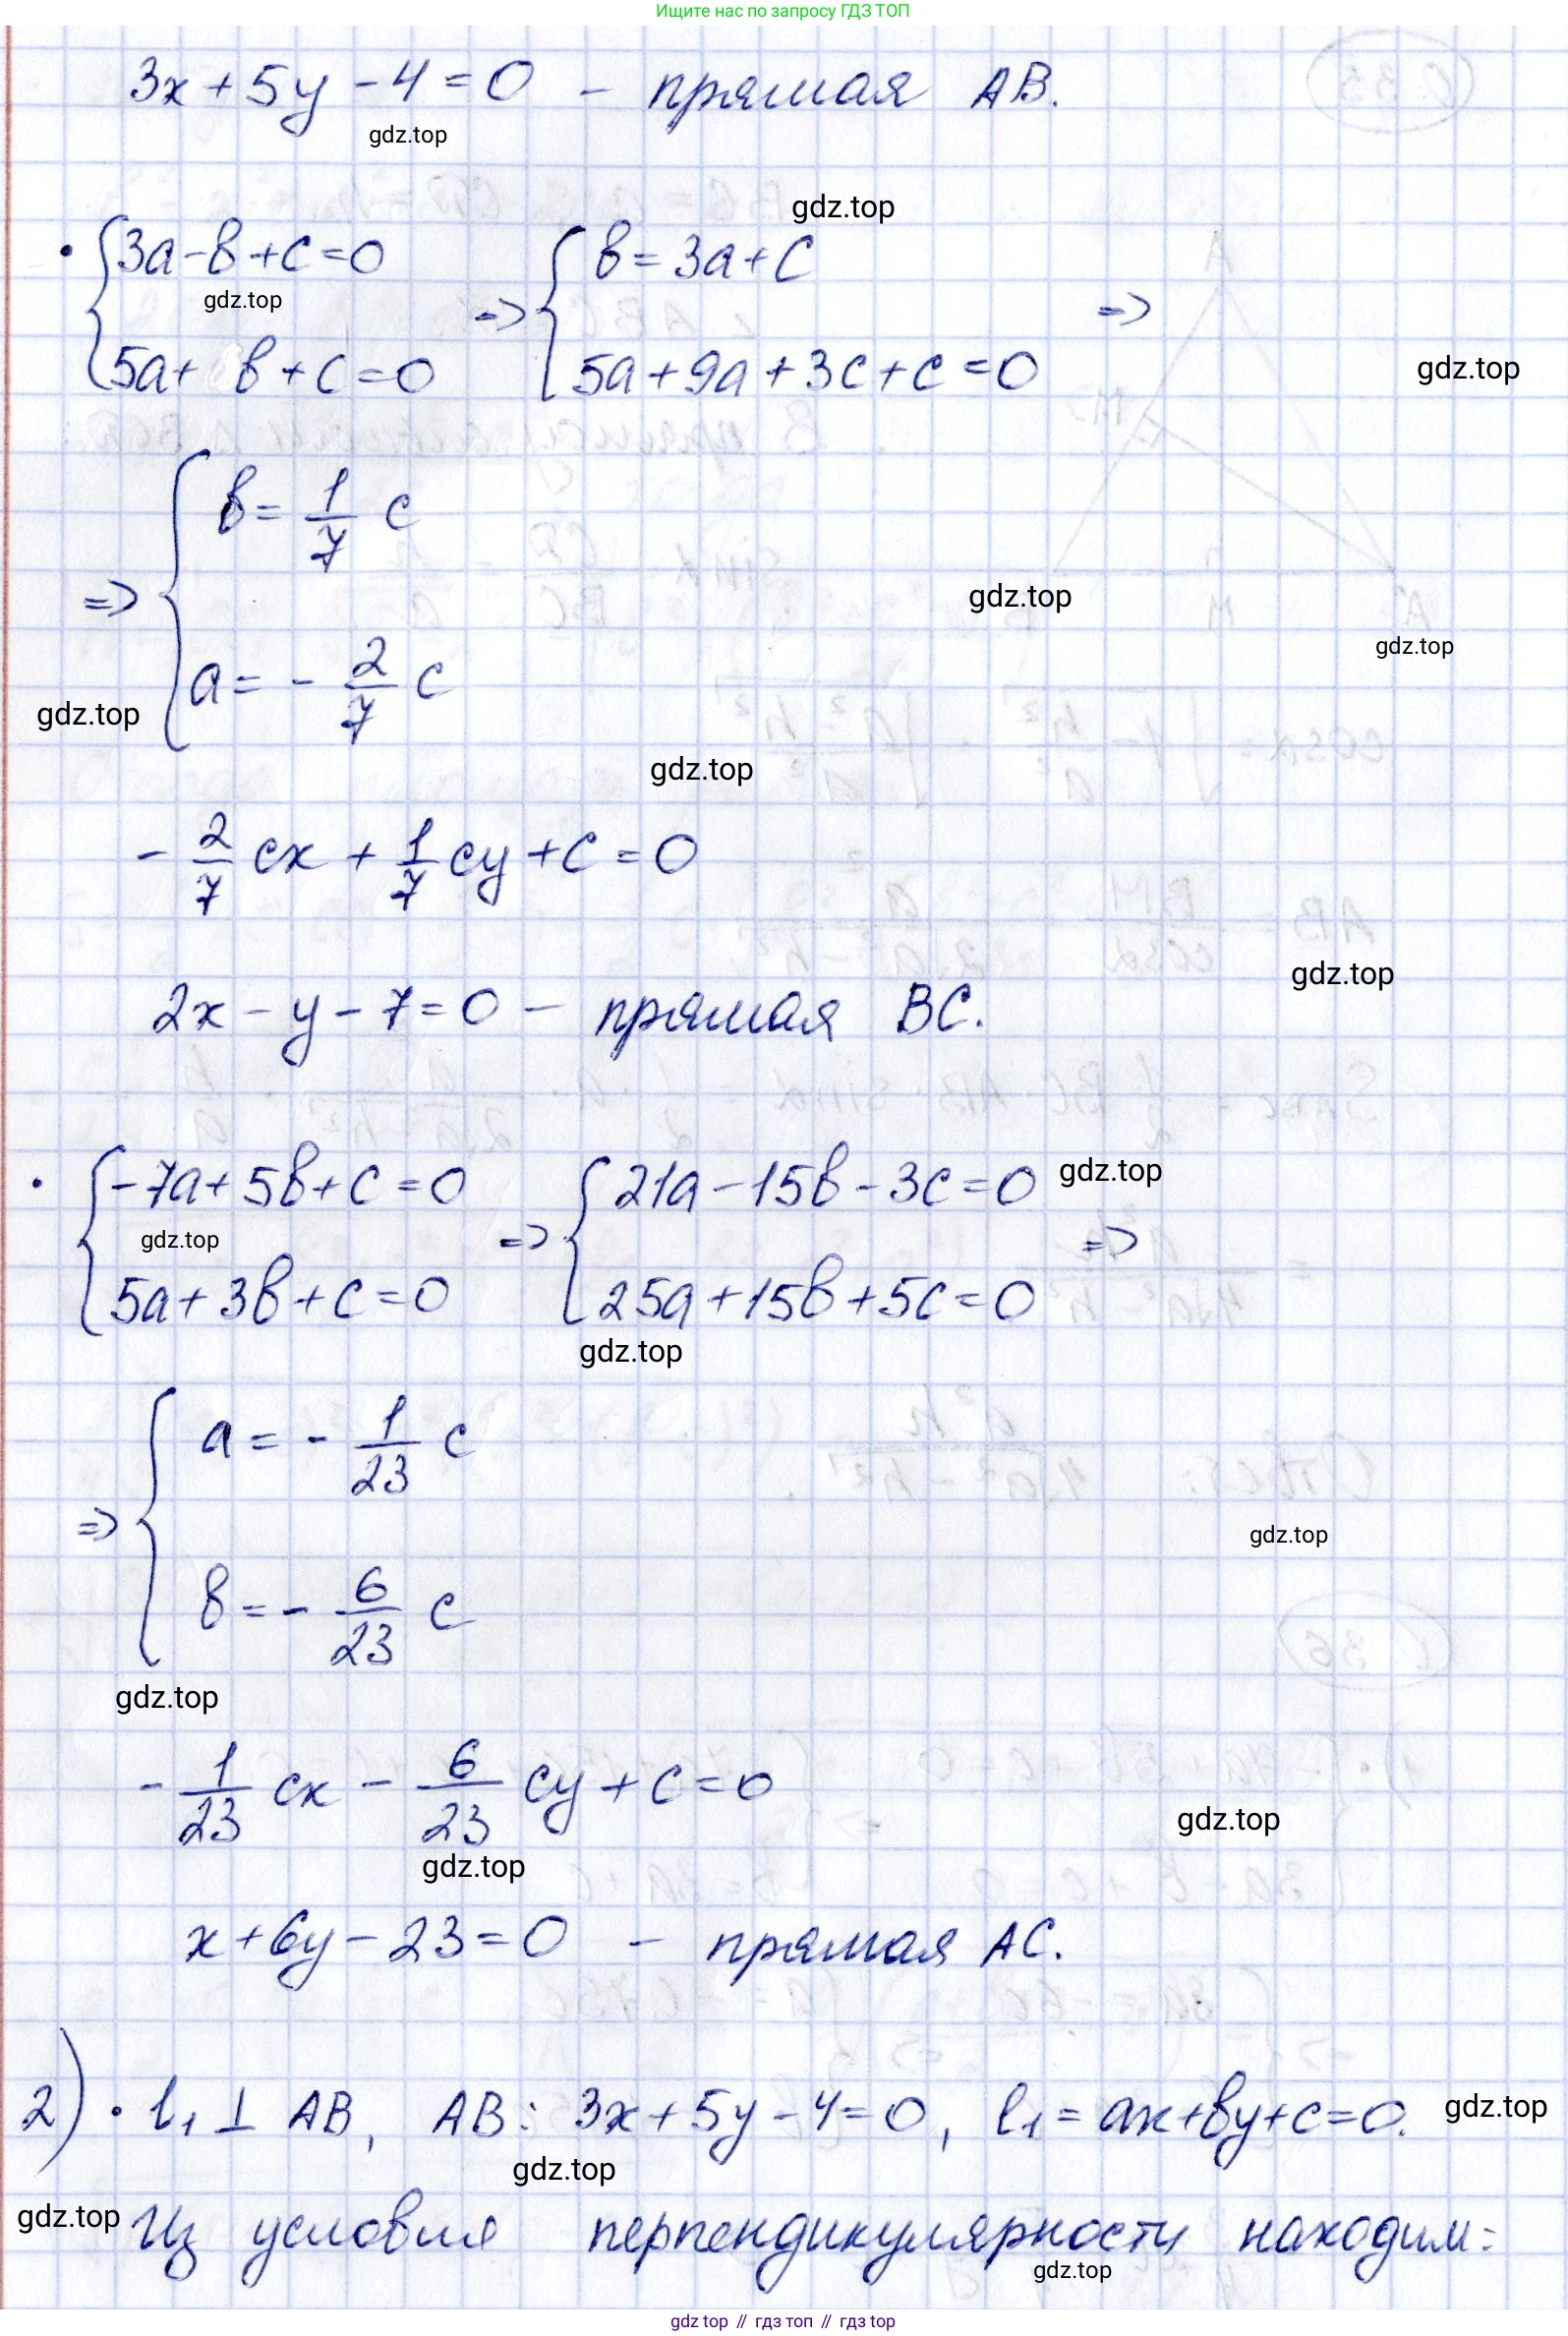 Ищите нас по запросу ГДЗ ТОП
3x + 5y - 4 = 0 - прямая AB.
gdz.top
gdz.top
• { 3a - b + c = 0 => { b = 3a + c =>
gdz.top
5a + b + c = 0 5a + 9a + 3c + c = 0
gdz.top
b = 1/7 c
=> {
gdz.top
gdz.top
a = - 2/7 c
gdz.top
gdz.top
- 2/7 cx + 1/7 cy + c = 0
gdz.top
2x - y - 7 = 0 - прямая BC.
gdz.top
• { -7a + 5b + c = 0 => { 21a - 15b - 3c = 0 =>
gdz.top
5a + 3b + c = 0 25a + 15b + 5c = 0
gdz.top
a = - 1/23 c
=> {
gdz.top
b = - 6/23 c
gdz.top
- 1/23 cx - 6/23 cy + c = 0
gdz.top
gdz.top
x + 6y - 23 = 0 - прямая AC.
2) • l₁ ⊥ AB, AB: 3x + 5y - 4 = 0, l₁ = ax + by + c = 0.
gdz.top
gdz.top
gdz.top
Из условия перпендикулярности находим:
gdz.top
gdz.top // гдз топ // гдз top